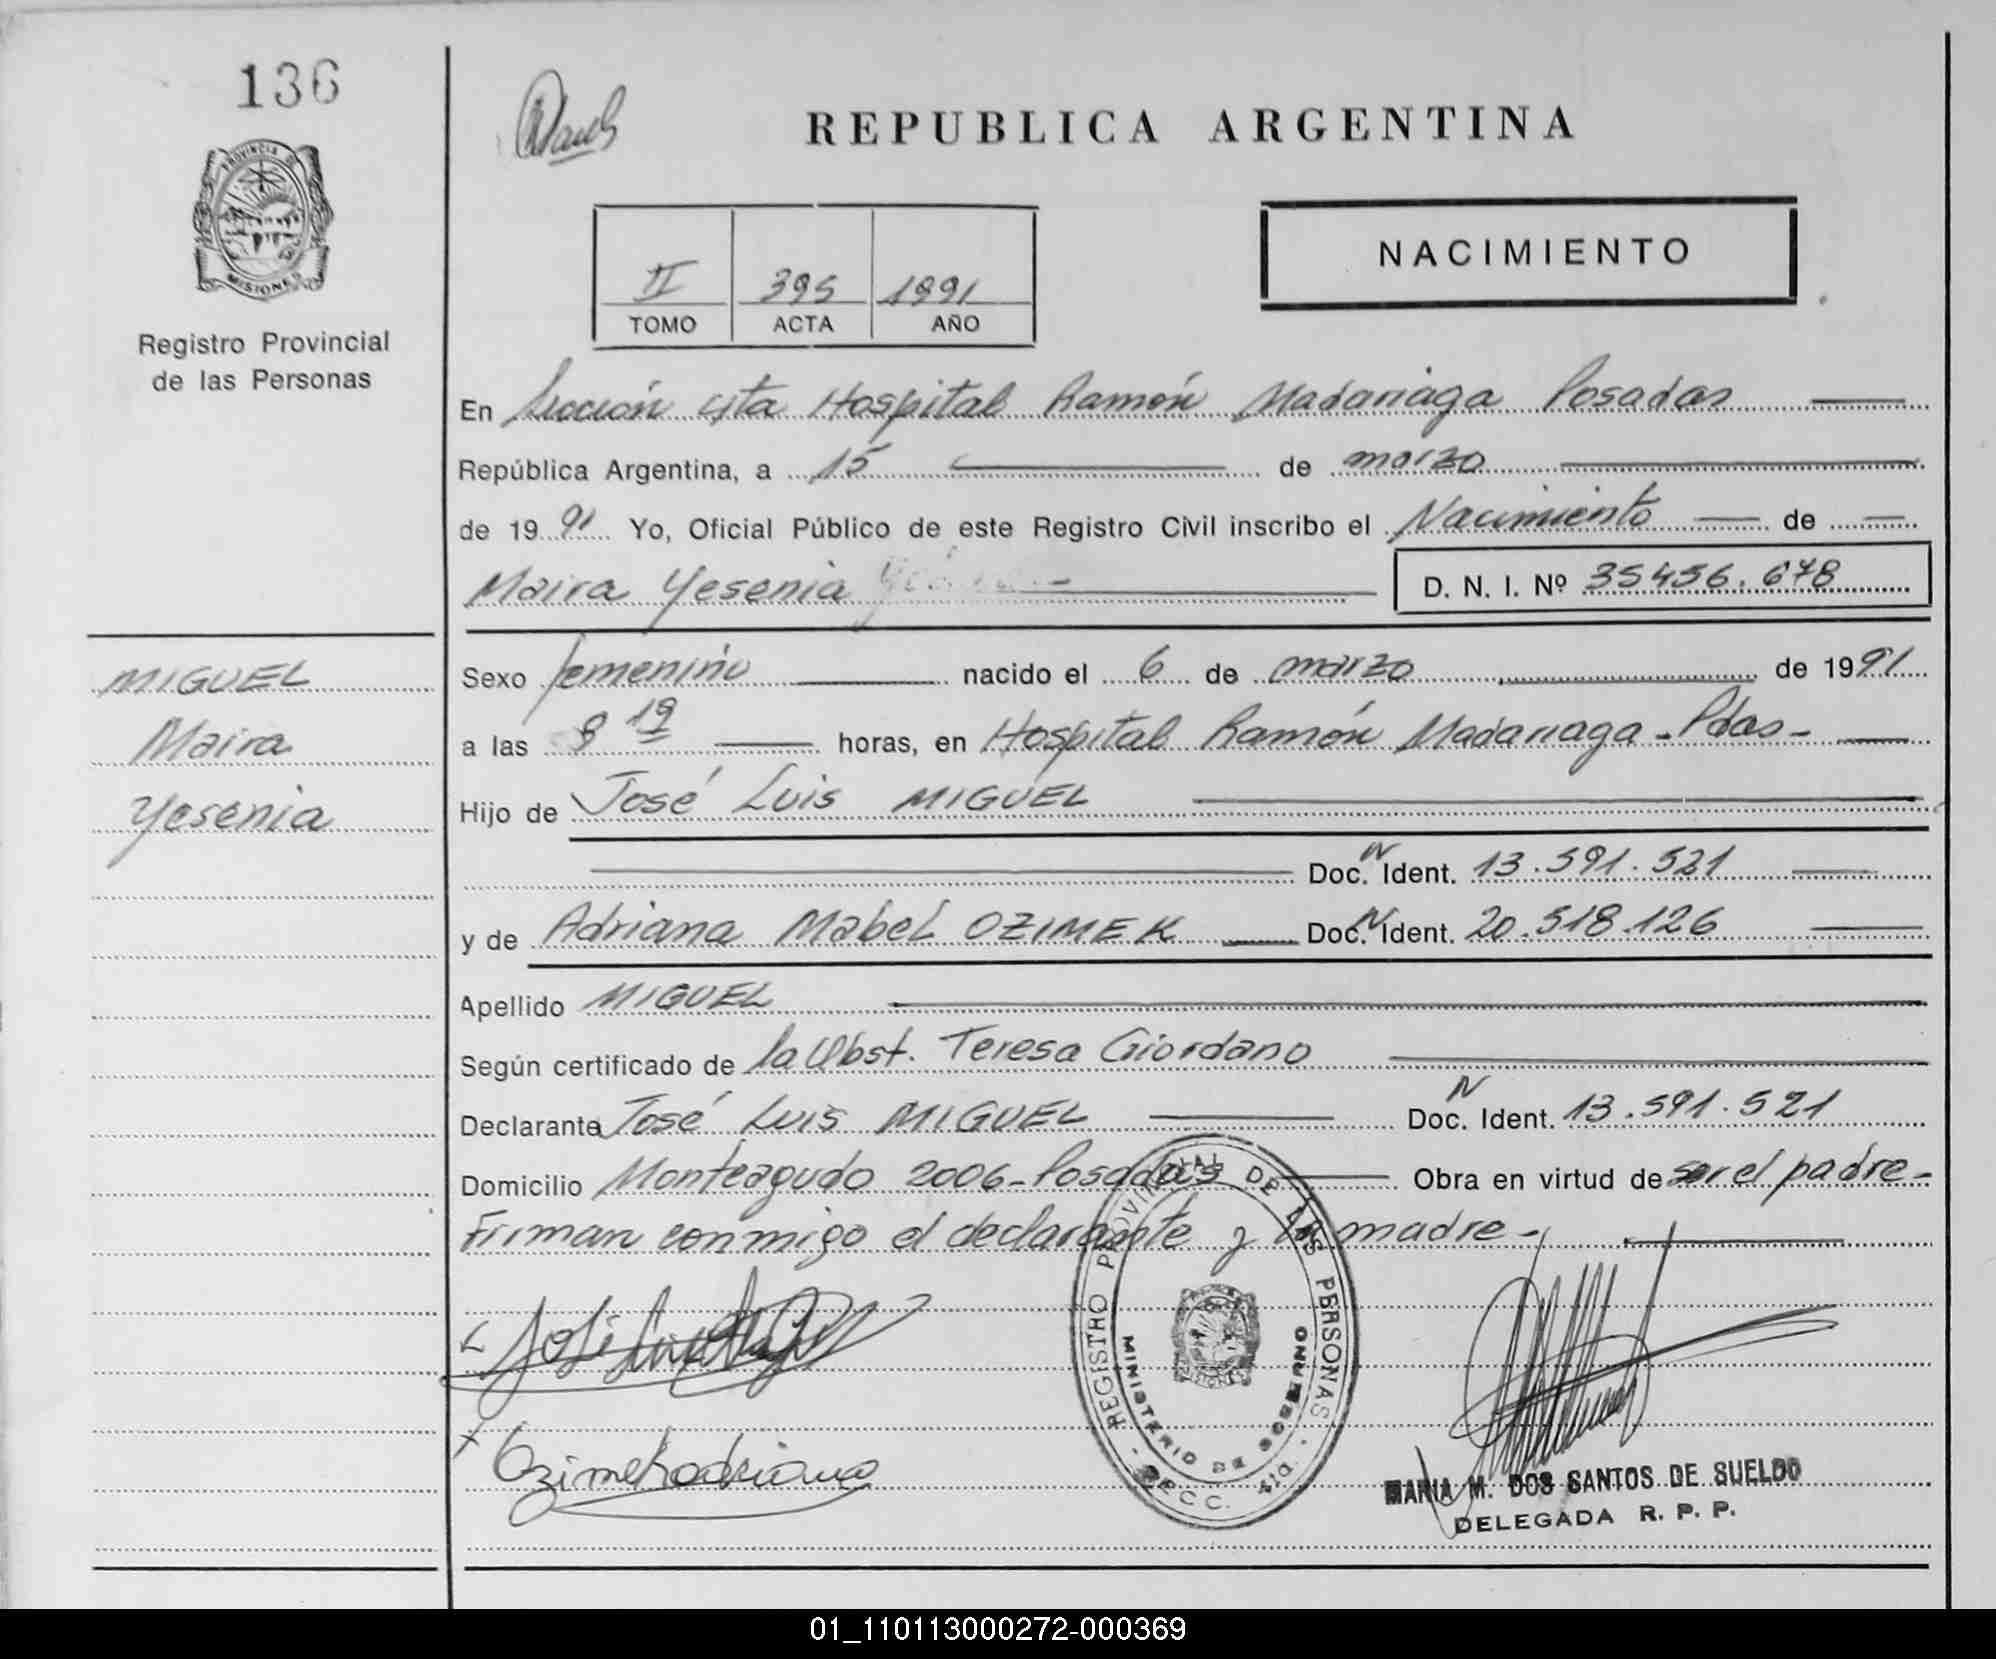 136
PROVINCIA DE
MISIONES
Registro Provincial
de las Personas
REPUBLICA ARGENTINA
NACIMIENTO
II 395 1991
TOMO ACTA AÑO
En Sección 4ta Hospital Ramón Madariaga Posadas
República Argentina, a 15 de marzo
de 1991 Yo, Oficial Público de este Registro Civil inscribo el Nacimiento de
Maira Yesenia D. N. I. Nº 35456.678
MIGUEL
Maira
Yesenia
Sexo femenino nacido el 6 de marzo de 1991
a las 8 19 horas, en Hospital Ramón Madariaga - Pdas -
Hijo de José Luis MIGUEL
Doc. N Ident. 13.591.521
y de Adriana Mabel OZIMEK Doc. N Ident. 20.518.126
Apellido MIGUEL
Según certificado de la Obst. Teresa Giordano
Declarante José Luis MIGUEL Doc. N Ident. 13.591.521
Domicilio Monteagudo 2006 - Posadas Obra en virtud de ser el padre -
Firman conmigo el declarante y la madre -
REGISTRO PROVINCIAL DE LAS PERSONAS
MINISTERIO DE GOBIERNO
Ozimek adriana
MARIA M. DOS SANTOS DE SUELDO
DELEGADA R. P. P.
01_110113000272-000369